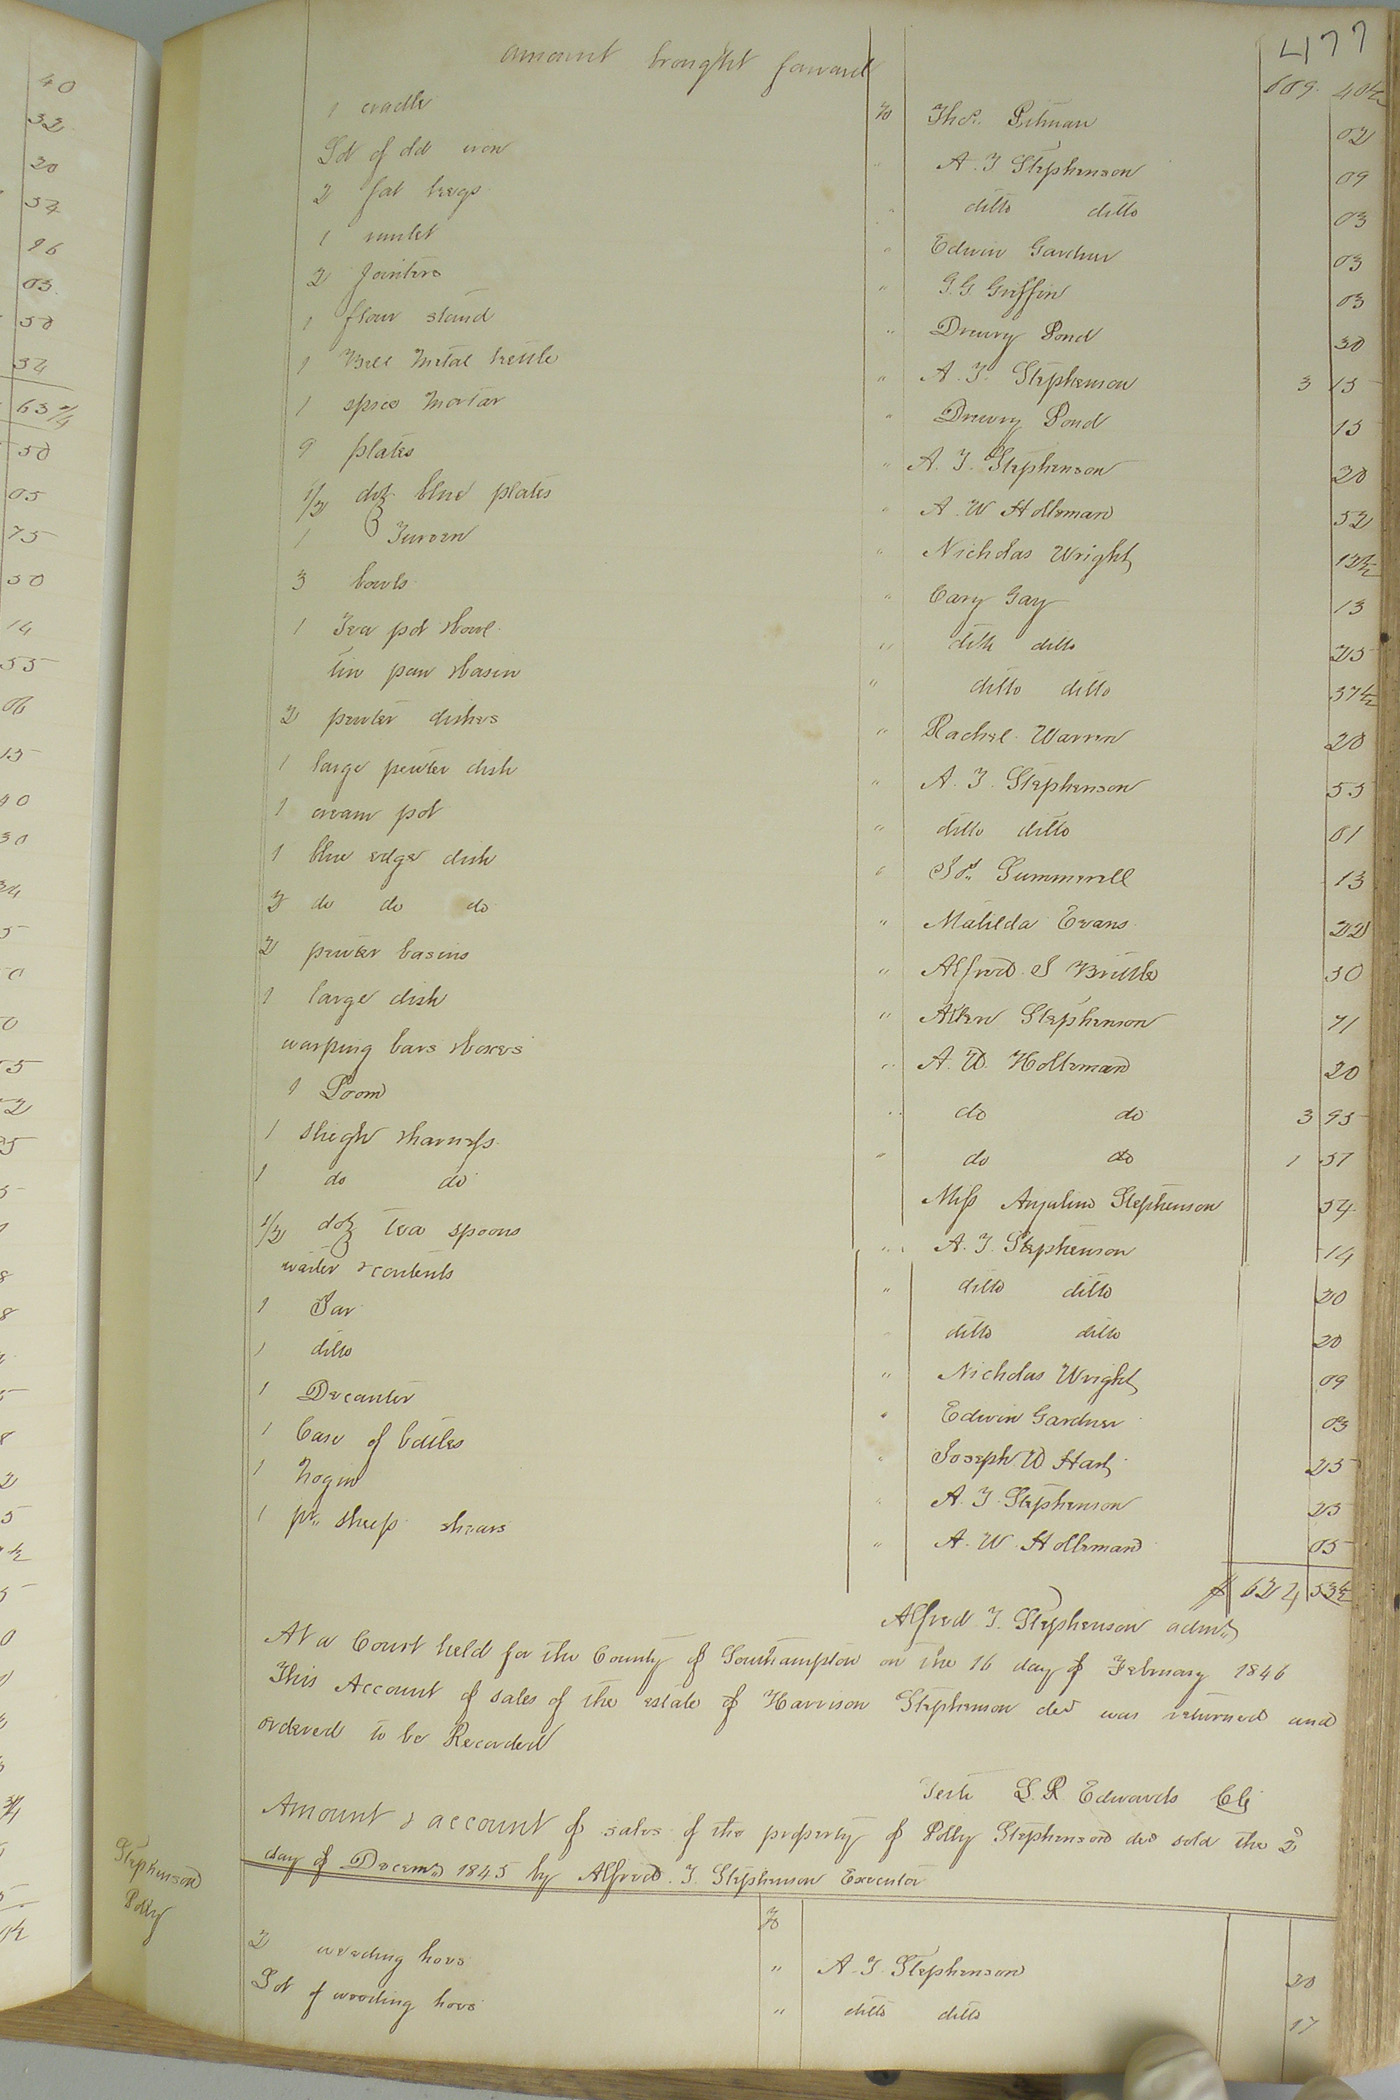 477
amount brought forward 609. 40½
1 cradle To Thos. Pitman 02
Lot of old iron " A. J Stephenson 09
2 fat kegs " ditto ditto 03
1 runlet " Edwin Gardner 03
2 Jointers " G. G Griffin 03
1 flour stand " Drewry Pond 30
1 Bell Metal kettle " A. J. Stephenson 3 15
1 spice Mortar " Drewry Pond 15
9 plates " A. J. Stephenson 20
1/2 doz blue plates " A. W Holleman 52
1 Tureen " Nicholas Wright 12½
3 bowls " Cary Gay 13
1 Tea pot & bowl " ditto ditto 25
tin pan & basin " ditto ditto 37½
2 pewter dishes " Rachel Warren 20
1 large pewter dish " A. J. Stephenson 55
1 cream pot " ditto ditto 01
1 blue edge dish " Jos Summerell 13
3 do do do " Matilda Evans 22
2 pewter basins " Alfred S Brittle 50
1 large dish " Allen Stephenson 71
warping bars & boxes " A. W. Holleman 20
1 Loom " do do 3 95
1 sleigh & harness " do do 1 57
1 do do Miss Anjulino Stephenson 54
1/2 doz tea spoons " A. J. Stephenson 14
waiter & contents " ditto ditto 30
1 Jar " ditto ditto 20
1 ditto " Nicholas Wright 09
1 Decanter " Edwin Gardner 03
1 Case of bottles " Joseph W Hart 25
1 Nogin " A. J. Stephenson 25
1 pr. sheep shears " A. W. Holleman 05
$ 624 53½
Alfred J. Stephenson admr
At a Court held for the County of Southampton on the 16 day of February 1846
This Account of sales of the estate of Harrison Stephenson decd was returned and
ordered to be Recorded
Teste L. R Edwards Clk
Amount & account of sales of the property of Polly Stephenson decd sold the 2d
day of Decemr 1845 by Alfred. J. Stephenson Executor
Stephenson
Polly
To
2 weeding hoes " A. J. Stephenson 20
Lot of weeding hoes " ditto ditto 17
40
32
20
54
96
03
50
34
63¾
50
05
75
50
14
55
06
15
40
30